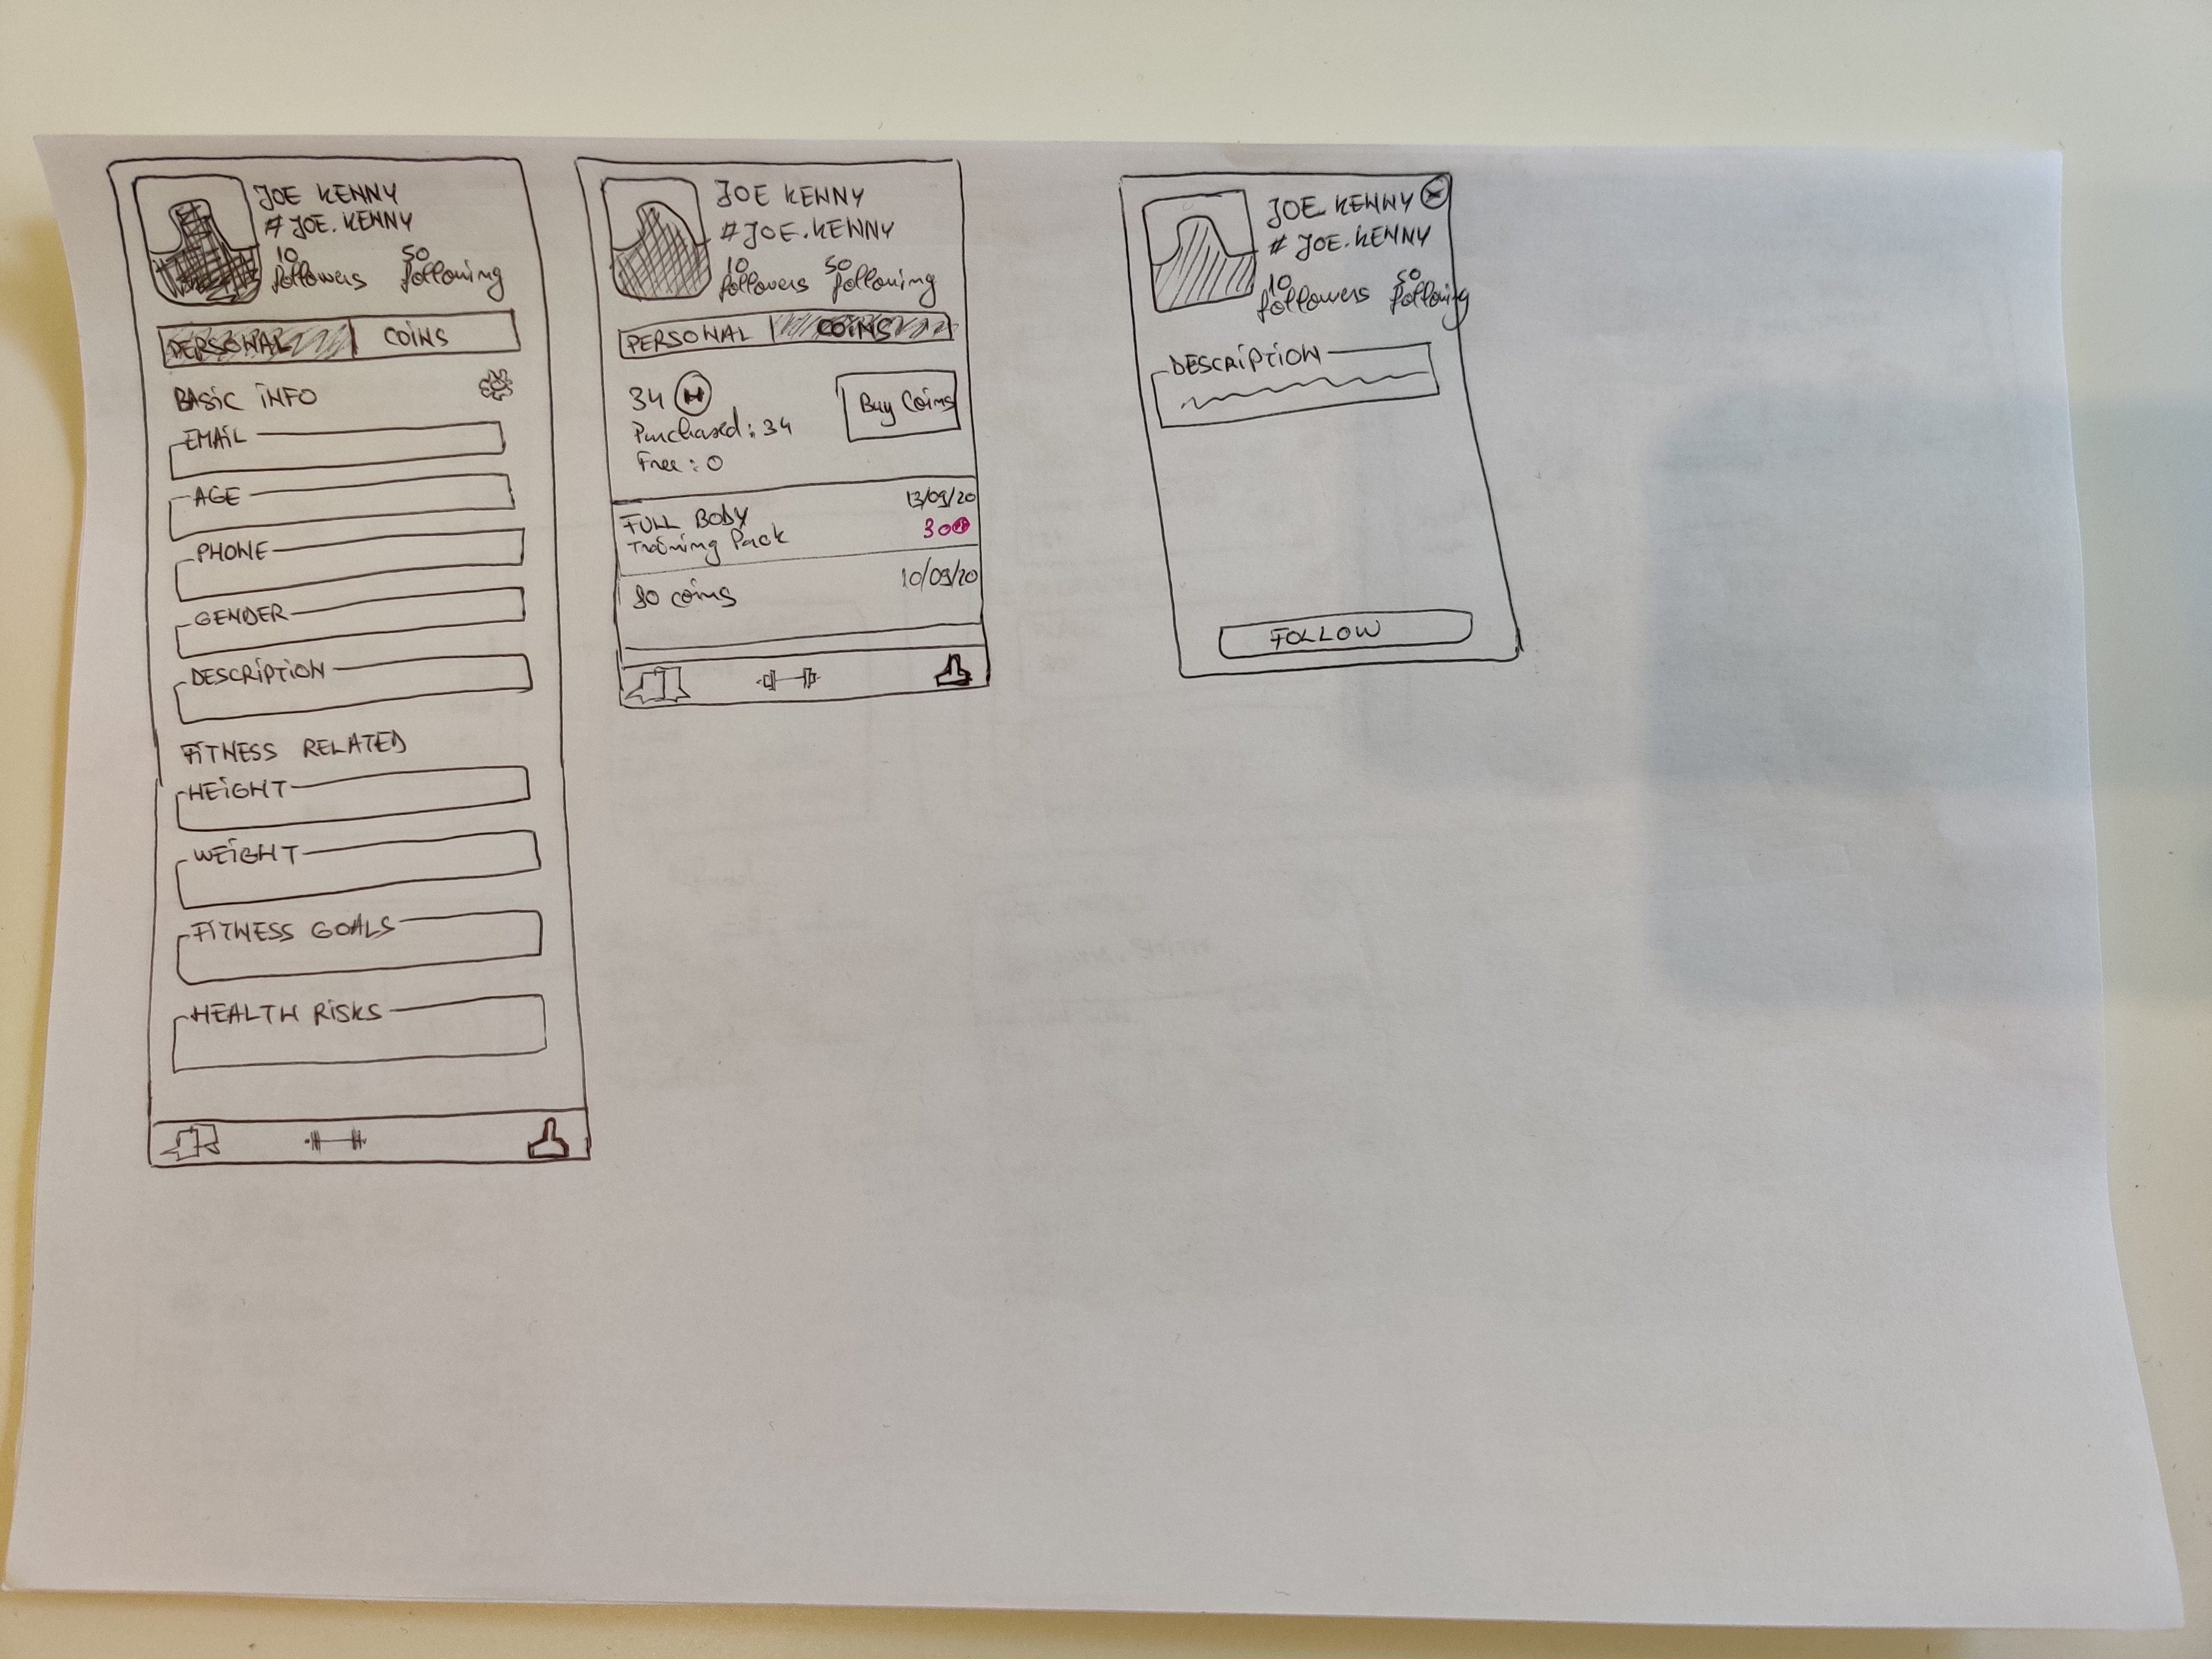 JOE KENNY
#JOE.KENNY
10 50
followers following
PERSONAL COINS
BASIC INFO
EMAIL
AGE
PHONE
GENDER
DESCRIPTION
FITNESS RELATED
HEIGHT
WEIGHT
FITNESS GOALS
HEALTH RISKS
JOE KENNY
#JOE.KENNY
10 50
followers following
PERSONAL COINS
34 H
Purchased: 34
Free: 0
Buy Coins
13/09/20
FULL BODY
Training Pack
30
10/09/20
coins
JOE KENNY X
#JOE.KENNY
10 50
followers following
DESCRIPTION
FOLLOW